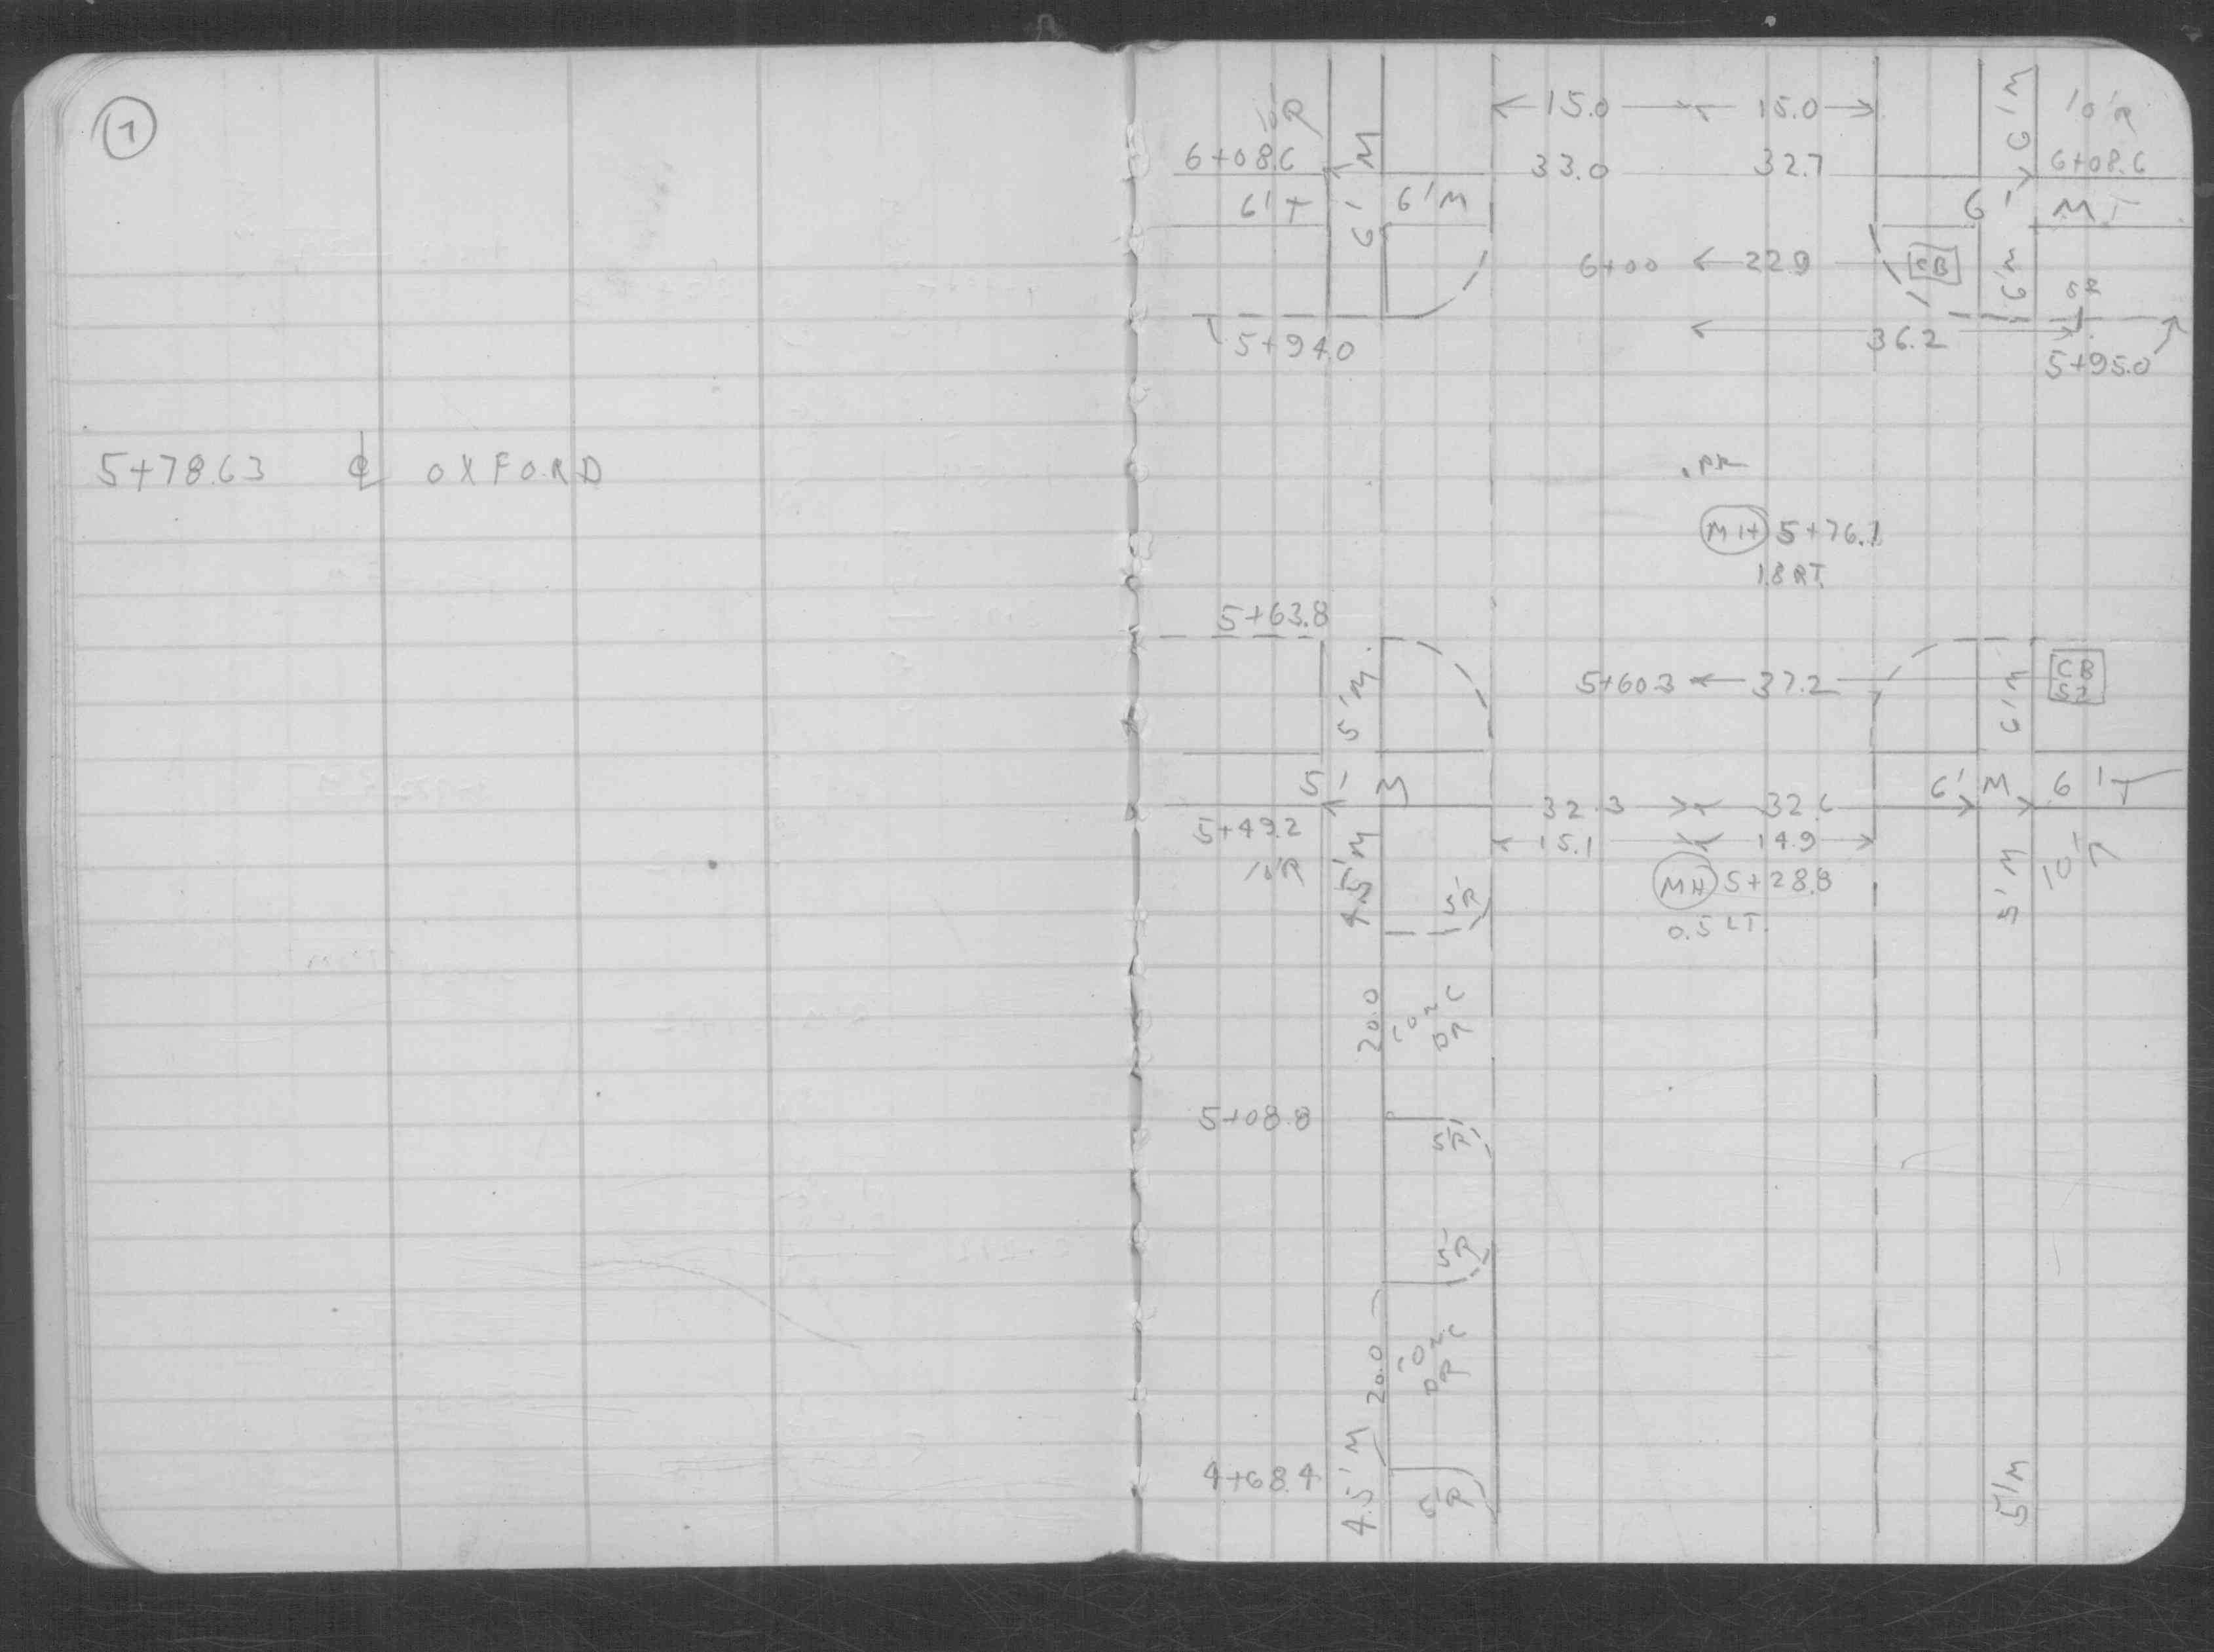 1
5+78.63 ℄ OXFORD
10'R 15.0 15.0 6'M 10'R
6+08.6 6'M 33.0 32.7 6+08.6
6'T 6'M 6' M T
6+00 22.9 CB 6'M
5+94.0 36.2
5+95.0
MH 5+76.1
1.8 RT.
5+63.8
5'M 5+60.3 37.2 6'M CB
5' M 6' M 6'T
32.3 32.6
5+49.2 15.1 14.9
10'R 4.5'M 5'R MH 5+28.8 5'M 10'R
0.5 LT.
20.0 CONC
DR
5+08.8
5'R
5'R
20.0 CONC
DR
4+68.4 4.5'M 5'R 5'M